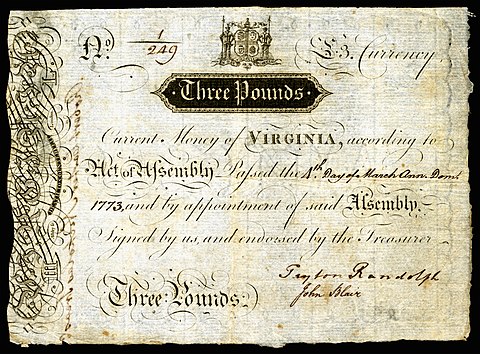 No. 1/249 £3. Currency
Three Pounds.
Current Money of VIRGINIA, according to
Act of Assembly Passed the 4th. Day of March Ann. Dom.
1773, and by appointment of said Assembly.
Signed by us, and endorsed by the Treasurer
Peyton Randolph
John Blair
Three Pounds.